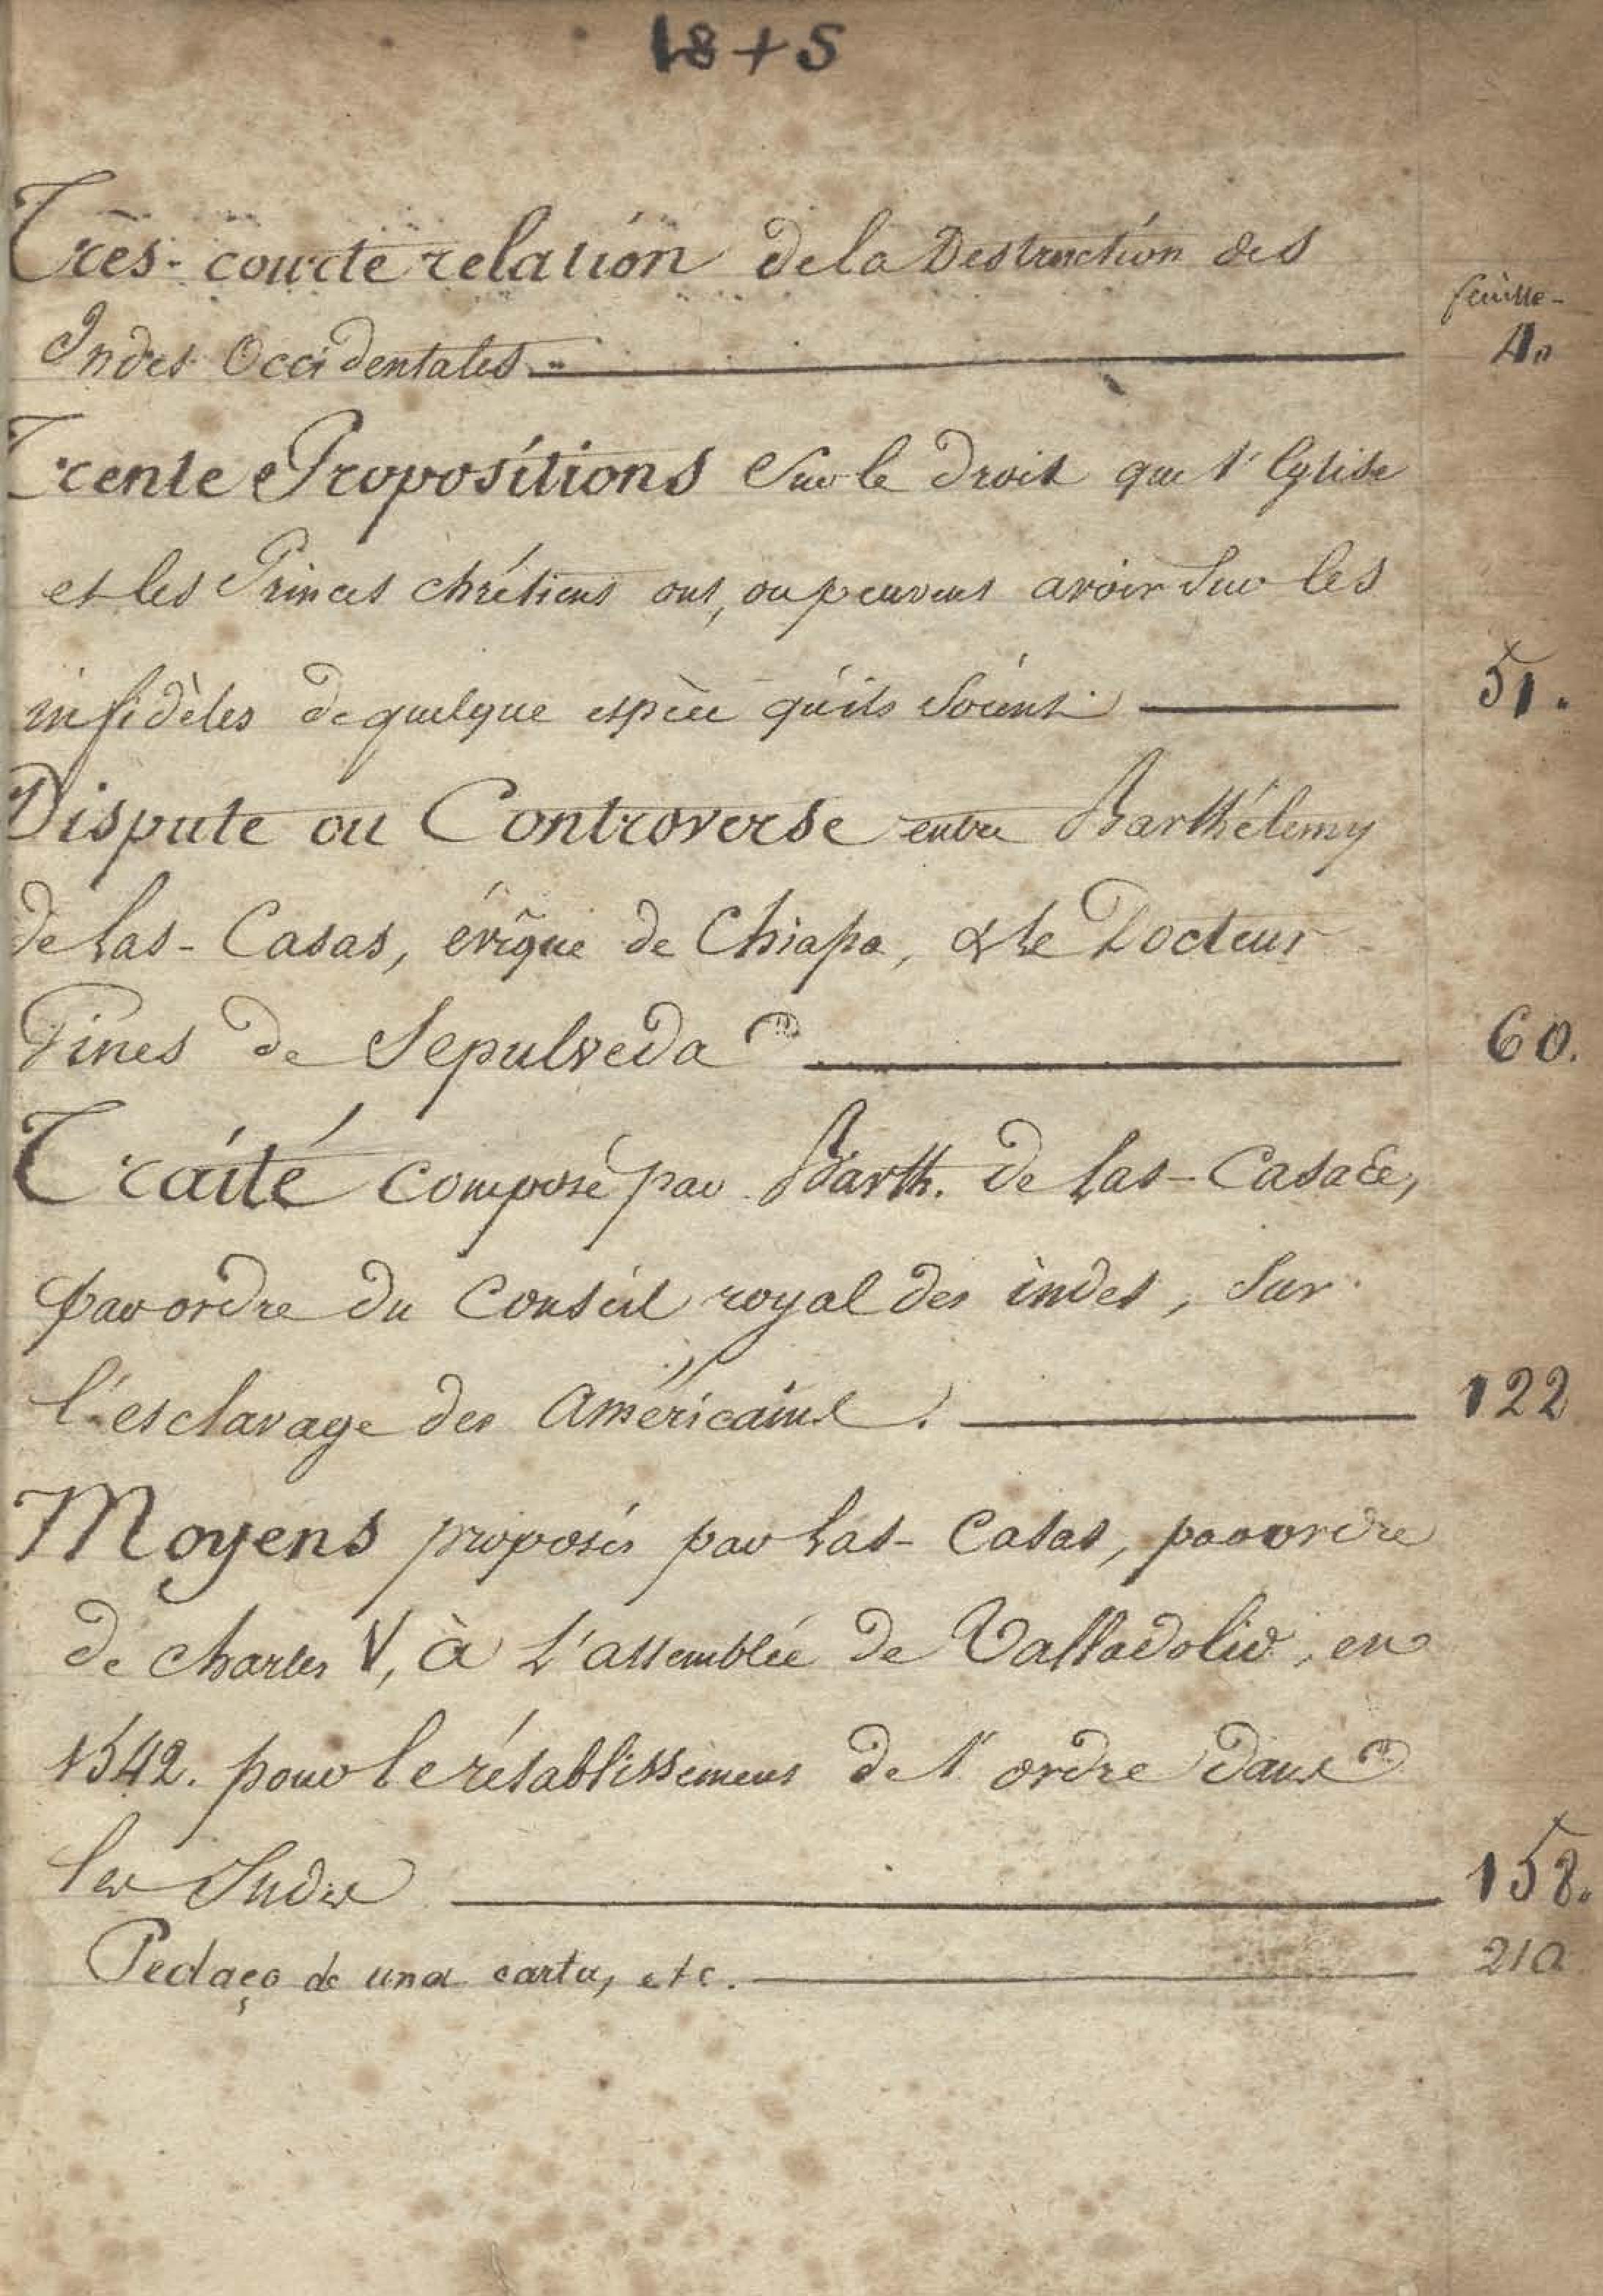 18+5
Très-courte relation de la Destruction des
feuille-
Indes Occidentales 4.
Trente Propositions Sur le droit que l'Eglise
et les Princes chrétiens ont, ou peuvent avoir Sur les
infidèles de quelque espèce qu'ils Soient 51.
Dispute ou Controverse entre Barthélemy
de Las-Casas, évêque de Chiapa, & le Docteur
Pines de Sepulveda 60.
Traité composé par Barth. de las-Casas,
par ordre du Conseil royal des indes, Sur
l'esclavage des Américains. 122
Moyens proposés par Las-Casas, par ordre
de charles V, à L'assemblée de Valladolid, en
1542. pour le rétablissement de l'ordre dans
les Indes 158.
Pedaço de una carta, etc. 210